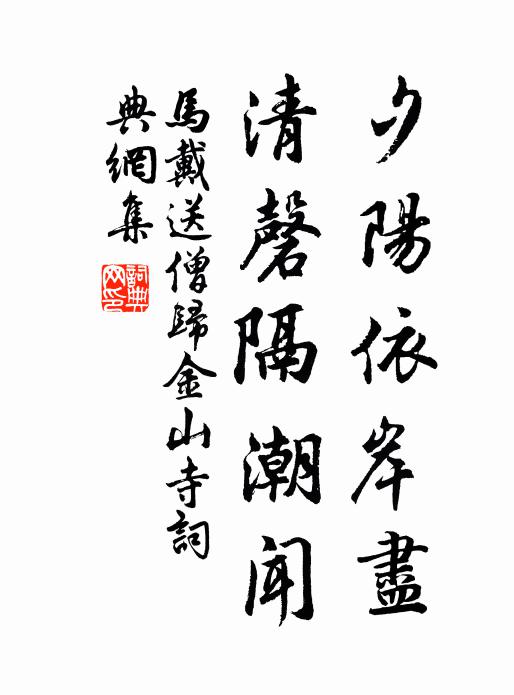 夕陽依岸盡
清磬隔潮聞
馬戴送僧歸金山寺詞
典網集
詞典网印